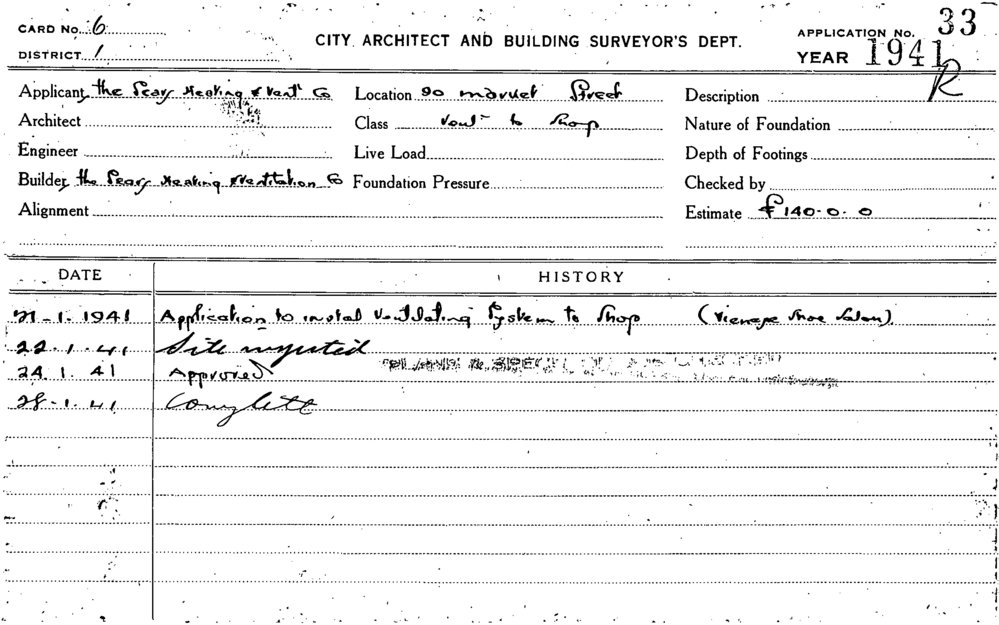 CARD No. 6
DISTRICT 1
CITY ARCHITECT AND BUILDING SURVEYOR'S DEPT.
APPLICATION No. 33
YEAR 1941
R
Applicant the Heating & Vent Co
Location 90 market Street
Description
Architect
Class Vent to Shop
Nature of Foundation
Engineer
Live Load
Depth of Footings
Builder the Heating & Ventilation Co
Foundation Pressure
Checked by
Alignment
Estimate £140-0-0
DATE HISTORY
21-1-1941 Application to instal Ventilating System to Shop ( Shoe Salon).
22.1.41 Site inspected
24.1.41 Approved
28-1.41 Complete